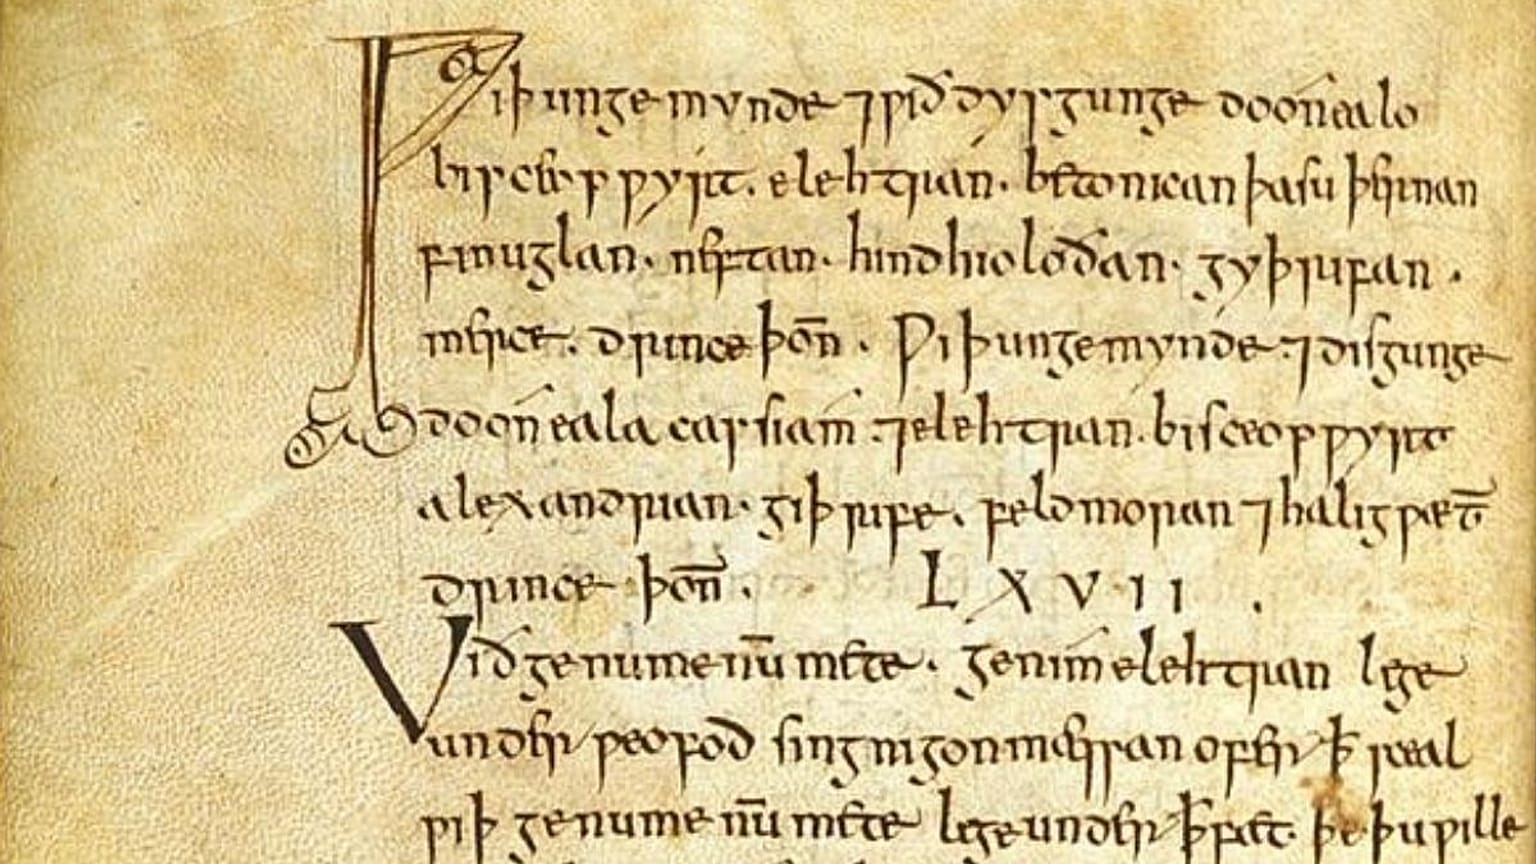 Ƿiþ ungemynde ⁊ ƿið dysgunge do on ealo
bisceopƿyrt. elehtrian. betonican þa suþerinan
finuglan. neftan. hindhioloðan. gyþrifan.
merice. drince þoñ. Ƿiþ ungemynde ⁊ disgunge
do on eala cassiam ⁊ elehtrian. bisceopƿyrt
alexandrian. giþrife. feldmoran ⁊ haligƿæt̄
drince þoñ. LXVII.
Við genumenū mete. genim elehtrian lege
under ƿeofod sing nigon mæssan ofer ꝥ sceal
ƿiþ genumenū mete lege under ꝥ fæt þe þu ƿille